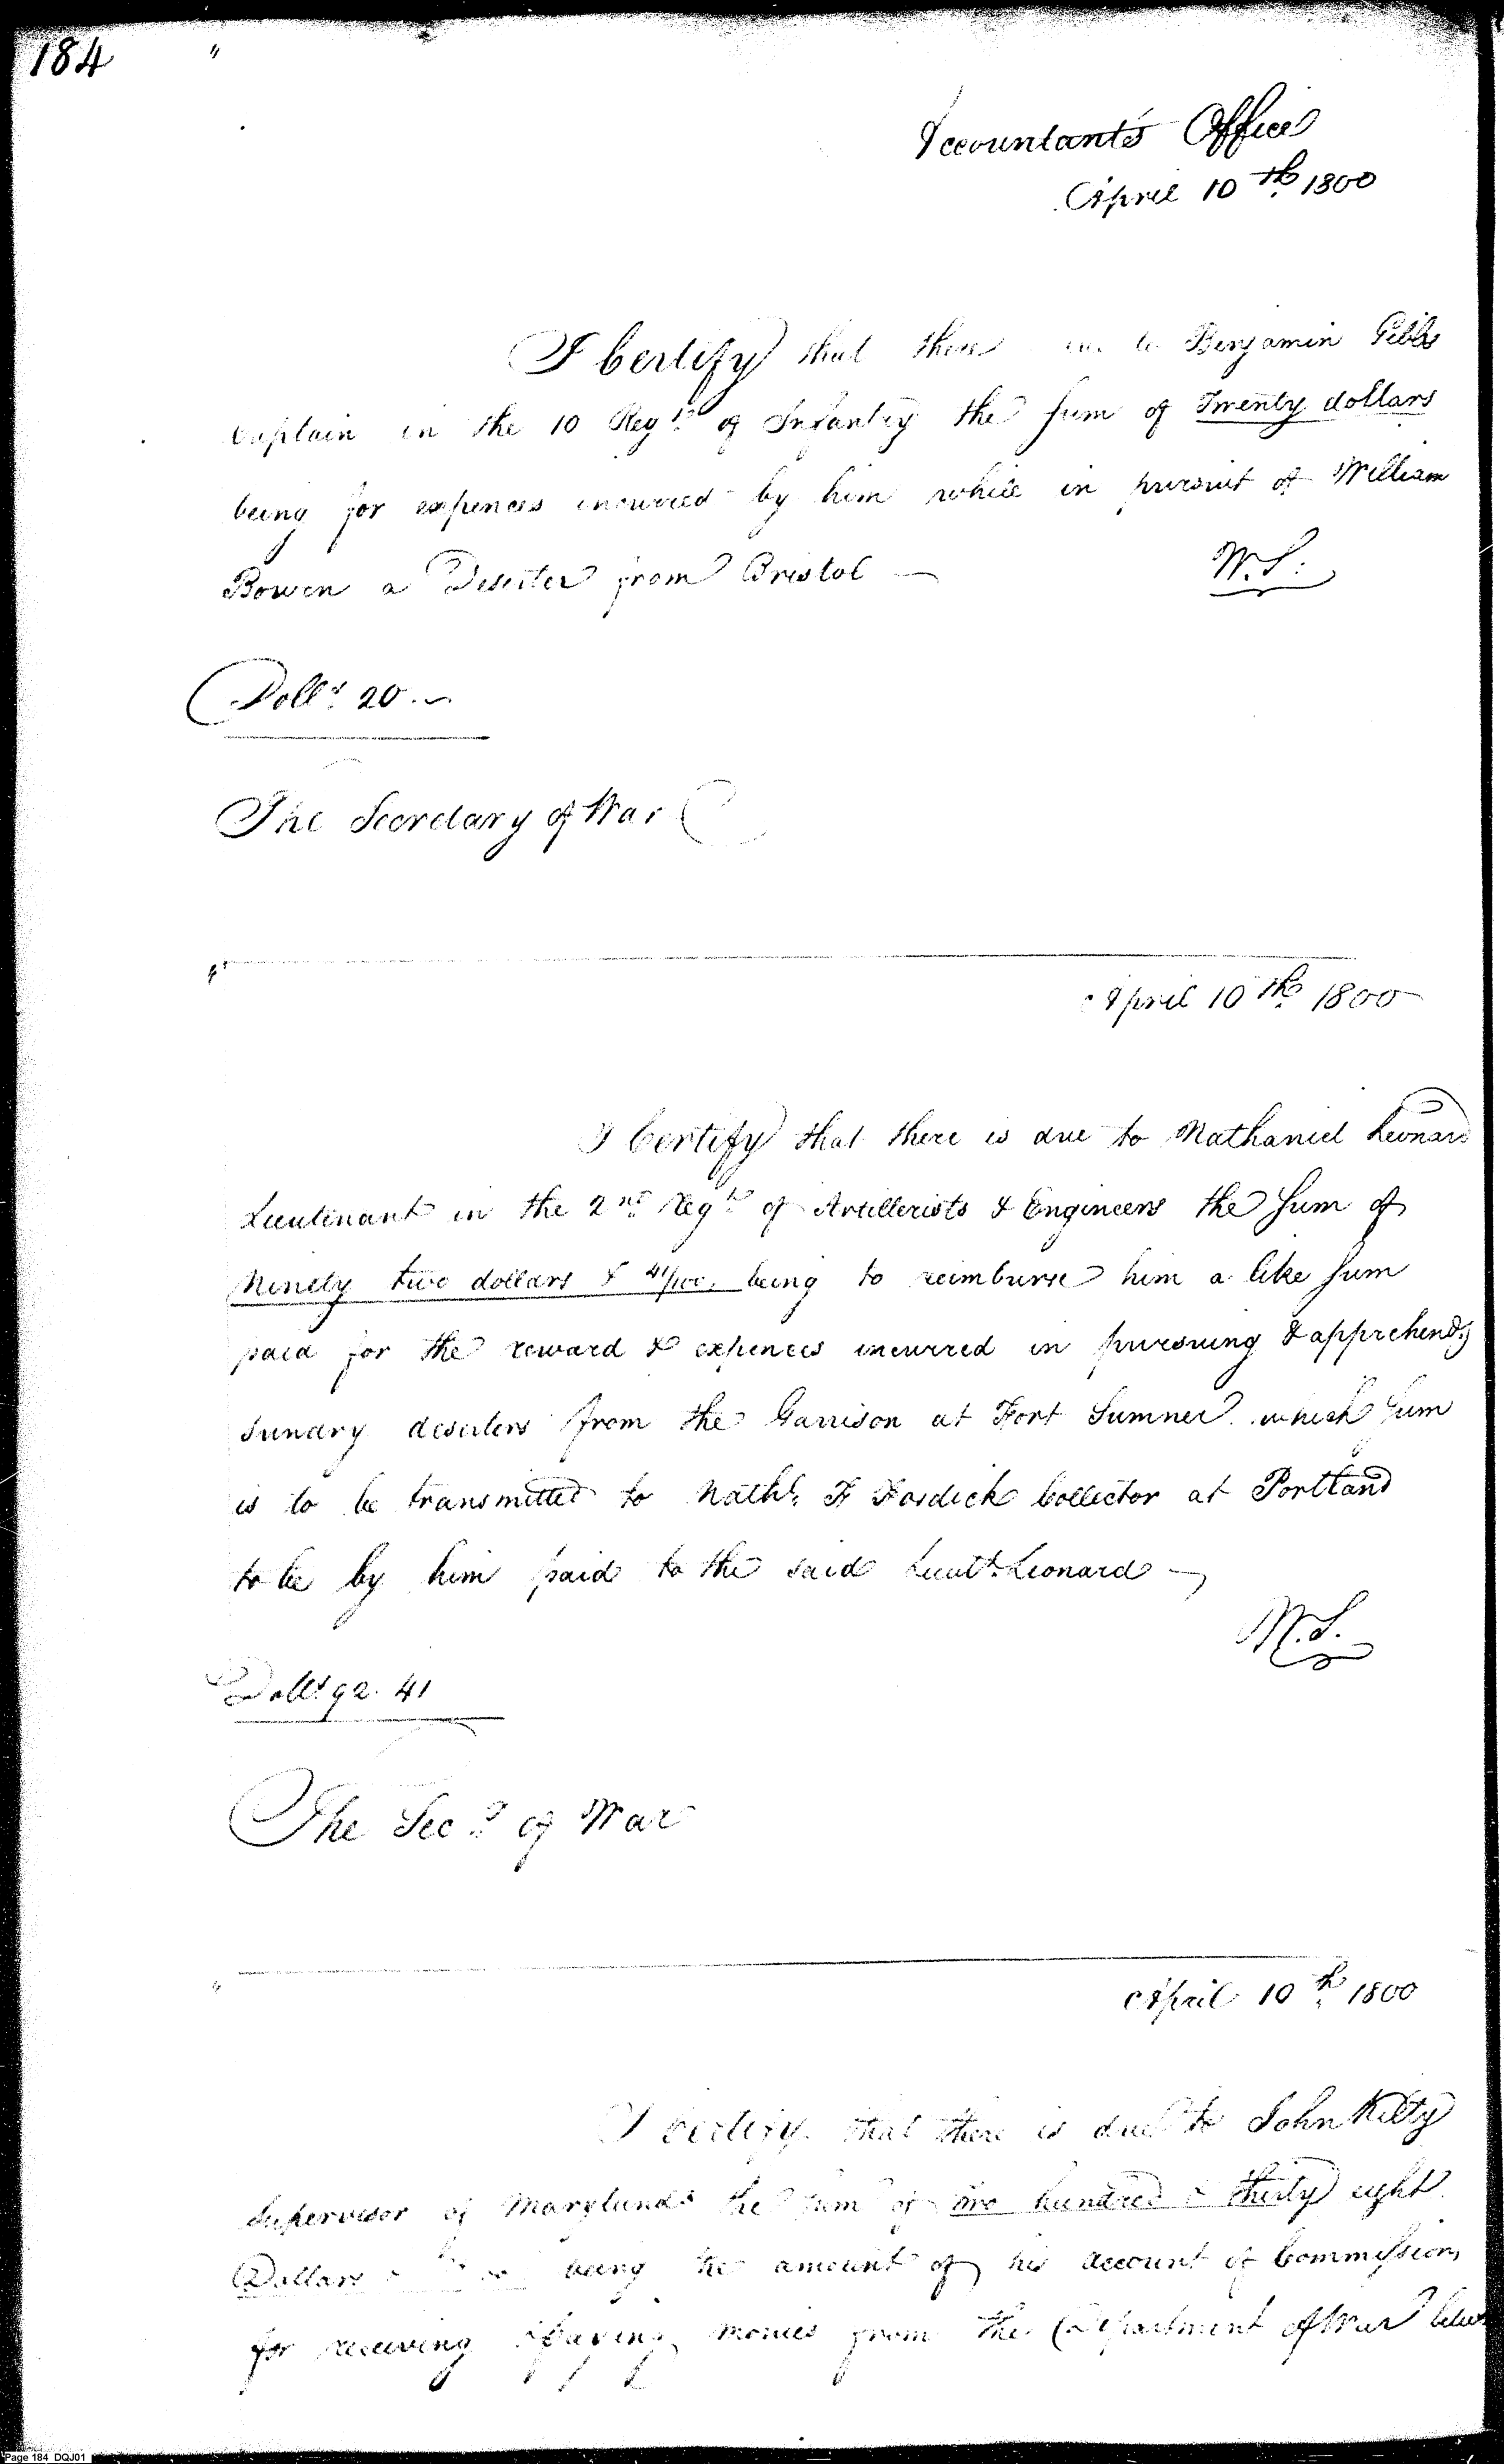 184
Accountant's Office
April 10th 1800
I Certify that there due to Benjamin Gibbs
Captain in the 10 Regt. of Infantry the sum of Twenty dollars
being for expences incurred by him while in pursuit of William
Bowen a Deserter from Bristol —
W.S.
Dolls. 20.—
The Secretary of War
April 10th 1800
I Certify that there is due to Nathaniel Leonard
Lieutenant in the 2nd Regt. of Artillerists & Engineers the sum of
Ninety two dollars & 41/100, being to reimburse him a like sum
paid for the reward & expences incurred in pursuing & apprehendg
sundry deserters from the Garrison at Fort Sumner which sum
is to be transmitted to Nathl. F Fosdick Collector at Portland
to be by him paid to the said Lieut. Leonard —
W.S.
Dolls. 92. 41
The Secy. of War
April 10th 1800
I certify that there is due to John Kilty
Supervisor of Maryland the sum of two hundred & thirty eight
Dollars being the amount of his account of Commissions
for receiving & paying monies from the Department of War
Page 184 DQJ01